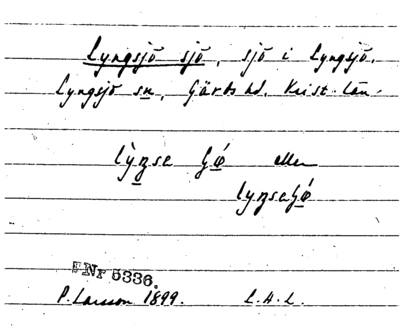 Lyngsjö sjö, sjö i Lyngsjö,
Lyngsjö sn, Gärds hd. Krist. län.
eller
FNr 5336.
P. Larsson 1899. L.A.L.